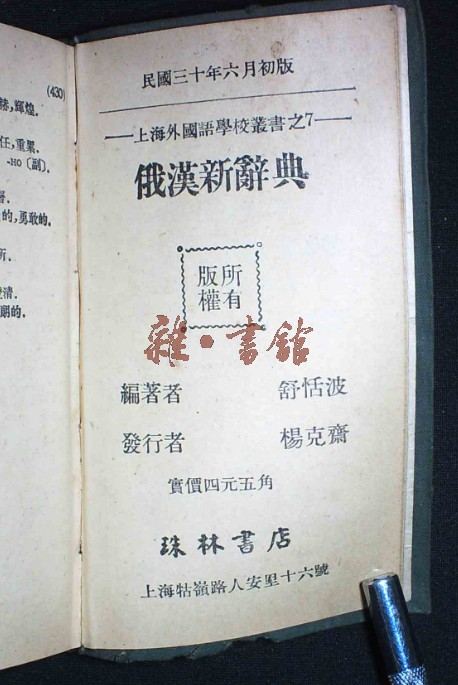 (430)
赫,輝煌.
任,重累.
-но〔副〕.
的,勇敢的.
所.
澄清.
朗的.
民國三十年六月初版
——上海外國語學校叢書之7——
俄漢新辭典
版權所有
雜·書館
編著者 舒恬波
發行者 楊克齋
實價四元五角
珠林書店
上海牯嶺路人安里十六號